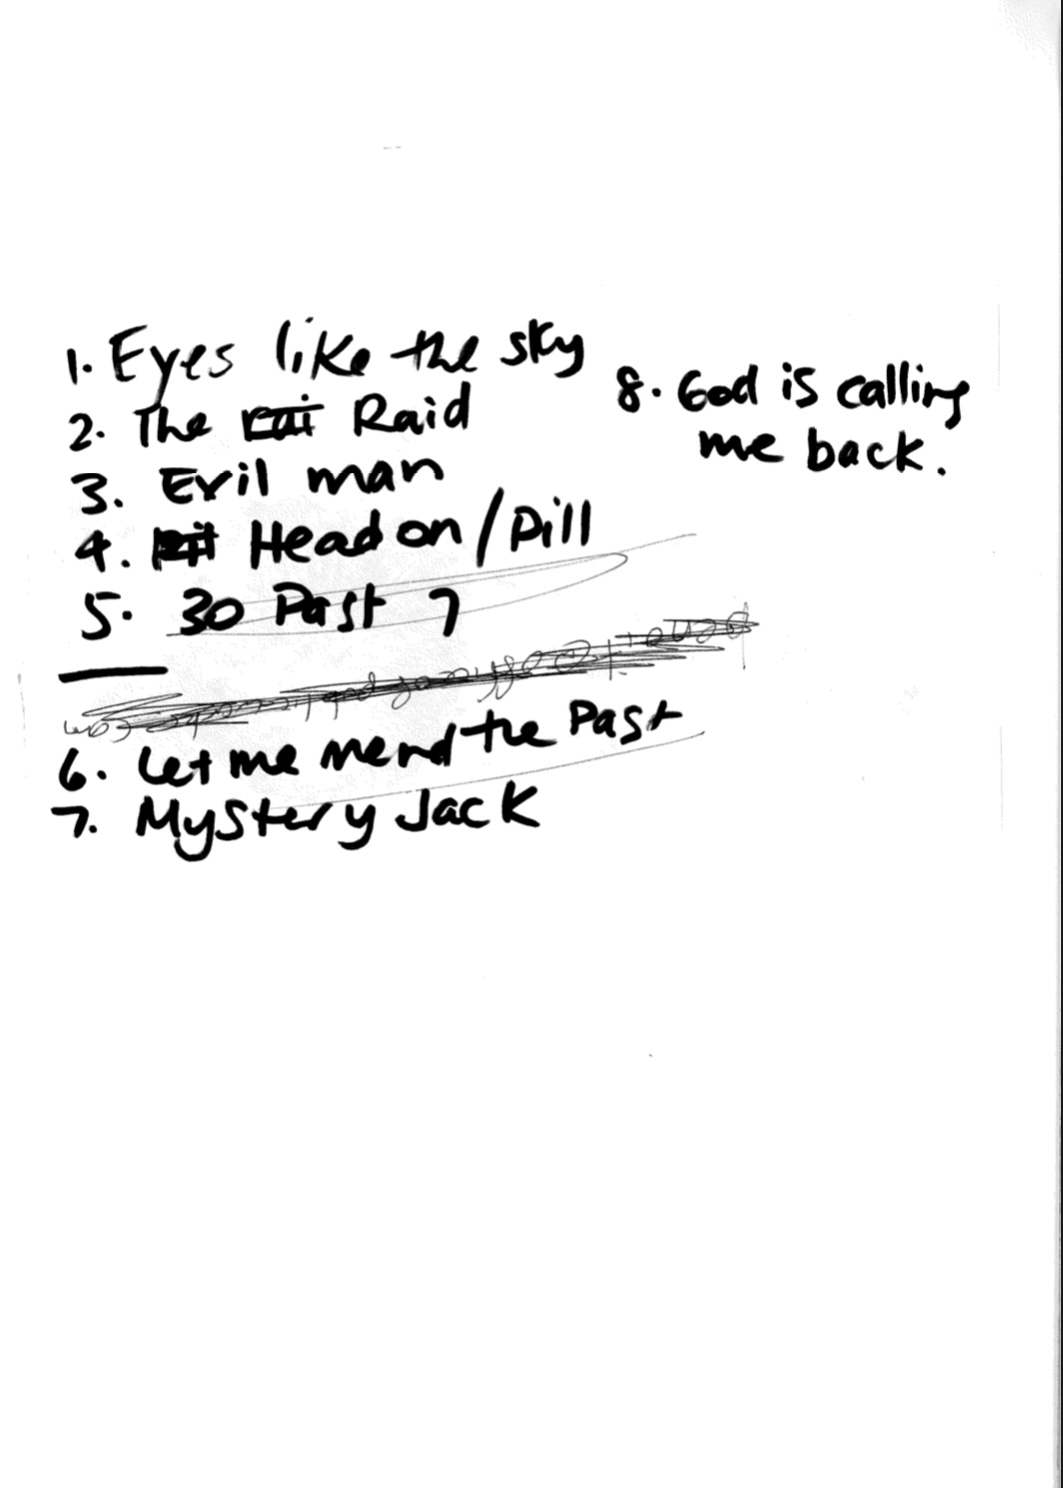 1. Eyes like the sky
2. The rai Raid
3. Evil man
4. Head on / Pill
5. 30 Past 7
6. Let me mend the Past
7. Mystery Jack
8. God is calling
me back.